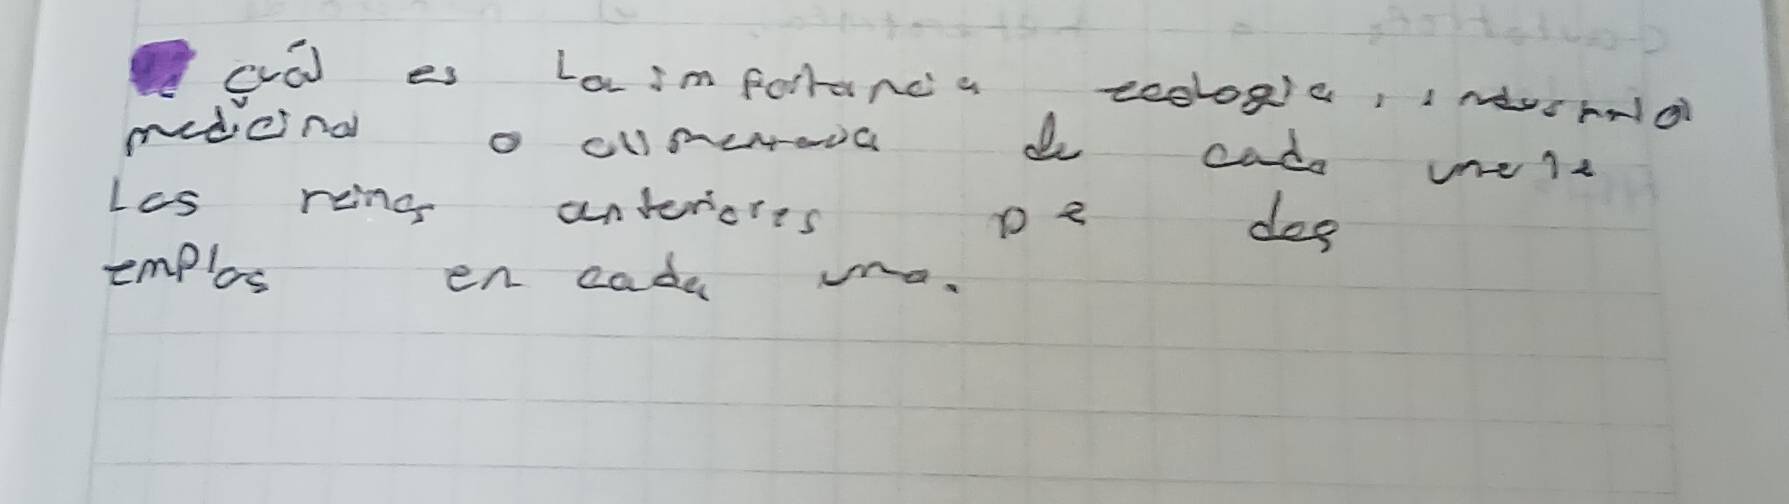 cuál es La importancia ecologia, industrial
medicinal o alimentaria de cada
Los reinos anteriores De dos
emplos en cada uno.